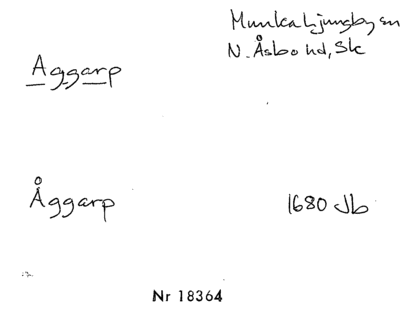 Munka Ljungby sn
N. Åsbo hd, Sk
Aggarp
Åggarp
1680 Jb
Nr 18364